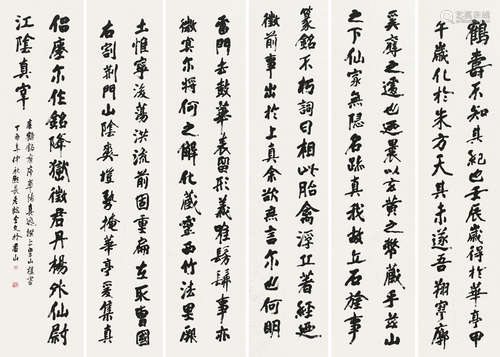 鶴壽不知其紀也壬辰歲得於華亭甲
午歲化於朱方天其未遂吾翔寥廓
奚奪之遽也迺裹以玄黃之幣藏乎茲山
之下仙家無隱名跡真我故立石旌事
篆銘不朽詞曰相此胎禽浮丘著經迺
徵前事出於上真余欲無言也何明
雷門去鼓華表留形義唯髣髴事亦
微冥爾將何之解化藏靈西竹法里厥
土惟寧後蕩洪流前固重扃左取曹國
右割荊門山陰爽塏勢掩華亭爰集真
侶瘞爾作銘降嶽徵君丹楊外仙尉
江陰真宰
瘞鶴銘華陽真逸撰上皇山樵書
丁酉年仲秋